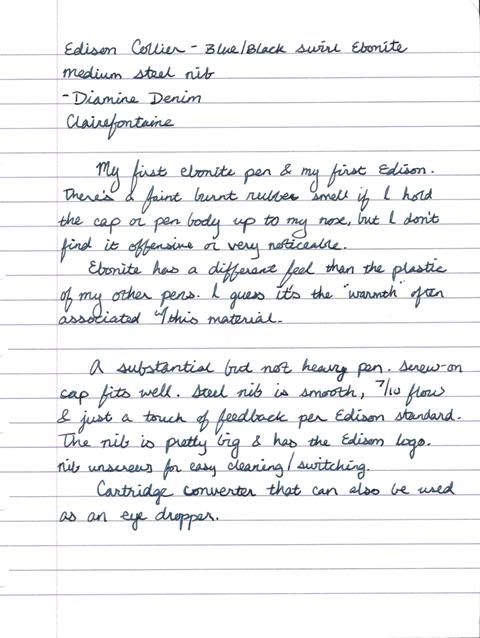 Edison Collier - Blue/Black swirl Ebonite
medium steel nib
- Diamine Denim
Clairefontaine
My first ebonite pen & my first Edison.
There's a faint burnt rubber smell if I hold
the cap or pen body up to my nose, but I don't
find it offensive or very noticeable.
Ebonite has a different feel than the plastic
of my other pens. I guess it's the "warmth" often
associated w/this material.
A substantial but not heavy pen. Screw-on
cap fits well. Steel nib is smooth, 7/10 flow
& just a touch of feedback per Edison standard.
The nib is pretty big & has the Edison logo.
nib unscrews for easy cleaning/switching.
Cartridge converter that can also be used
as an eye dropper.